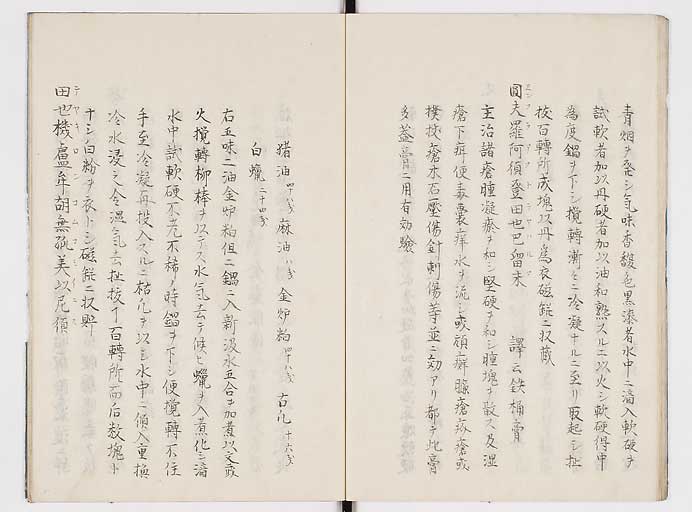 青烟ヲ発シ気味香馥色黒漆者水中ニ滴入軟硬ヲ
試軟者加以丹硬者加以油和熟スルニ以火シ軟硬得中
為度鍋ヲ下シ攪轉漸々ニ冷凝ナルニ至リ取起シ扯
抜百轉所成塊以丹為衣磁鋌ニ収蔵
圓夫羅阿須登田也巴留末 譯云鉄桶膏
主治諸瘡腫凝瘀ヲ和シ堅硬ヲ和シ腫塊ヲ散ス及湿
瘡下疳便毒嚢痒水ヲ流シ或頑癬臁瘡疥瘡或
撲扙瘡木石壓傷針刺傷等並ニ効アリ都テ此膏
多盖膏ニ用有効驗
猪油 麻油 金炉粕
白蠟二十四匁
右五味二油金炉粕但ニ鍋ニ入新汲水五合ヲ加煮以文武
火攪轉柳棒ヲ以テス水気去テ候ヒ蠟ヲ入煮化シ滴
水中試軟硬不老不稀ノ時鍋ヲ下シ便攪轉不住
手至冷凝再投入スルニ ヲ以シ水中ニ傾入重換
冷水浸之令温気去扯抜千百轉所而后数塊ト
ナシ白粉ヲ衣トシ磁鋌ニ収貯
田也機盧牟胡無孤美以尼須